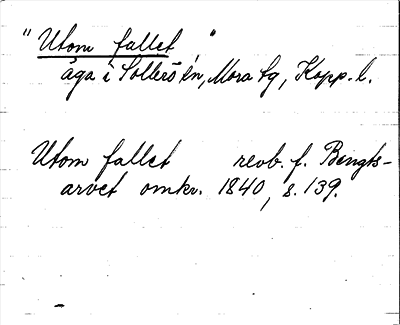 "Utom fallet"
äga i Sollerö sn, Mora tg, Kopp. l.
Utom fallet revb. f. Bengts-
arvet omkr. 1840, s. 139.